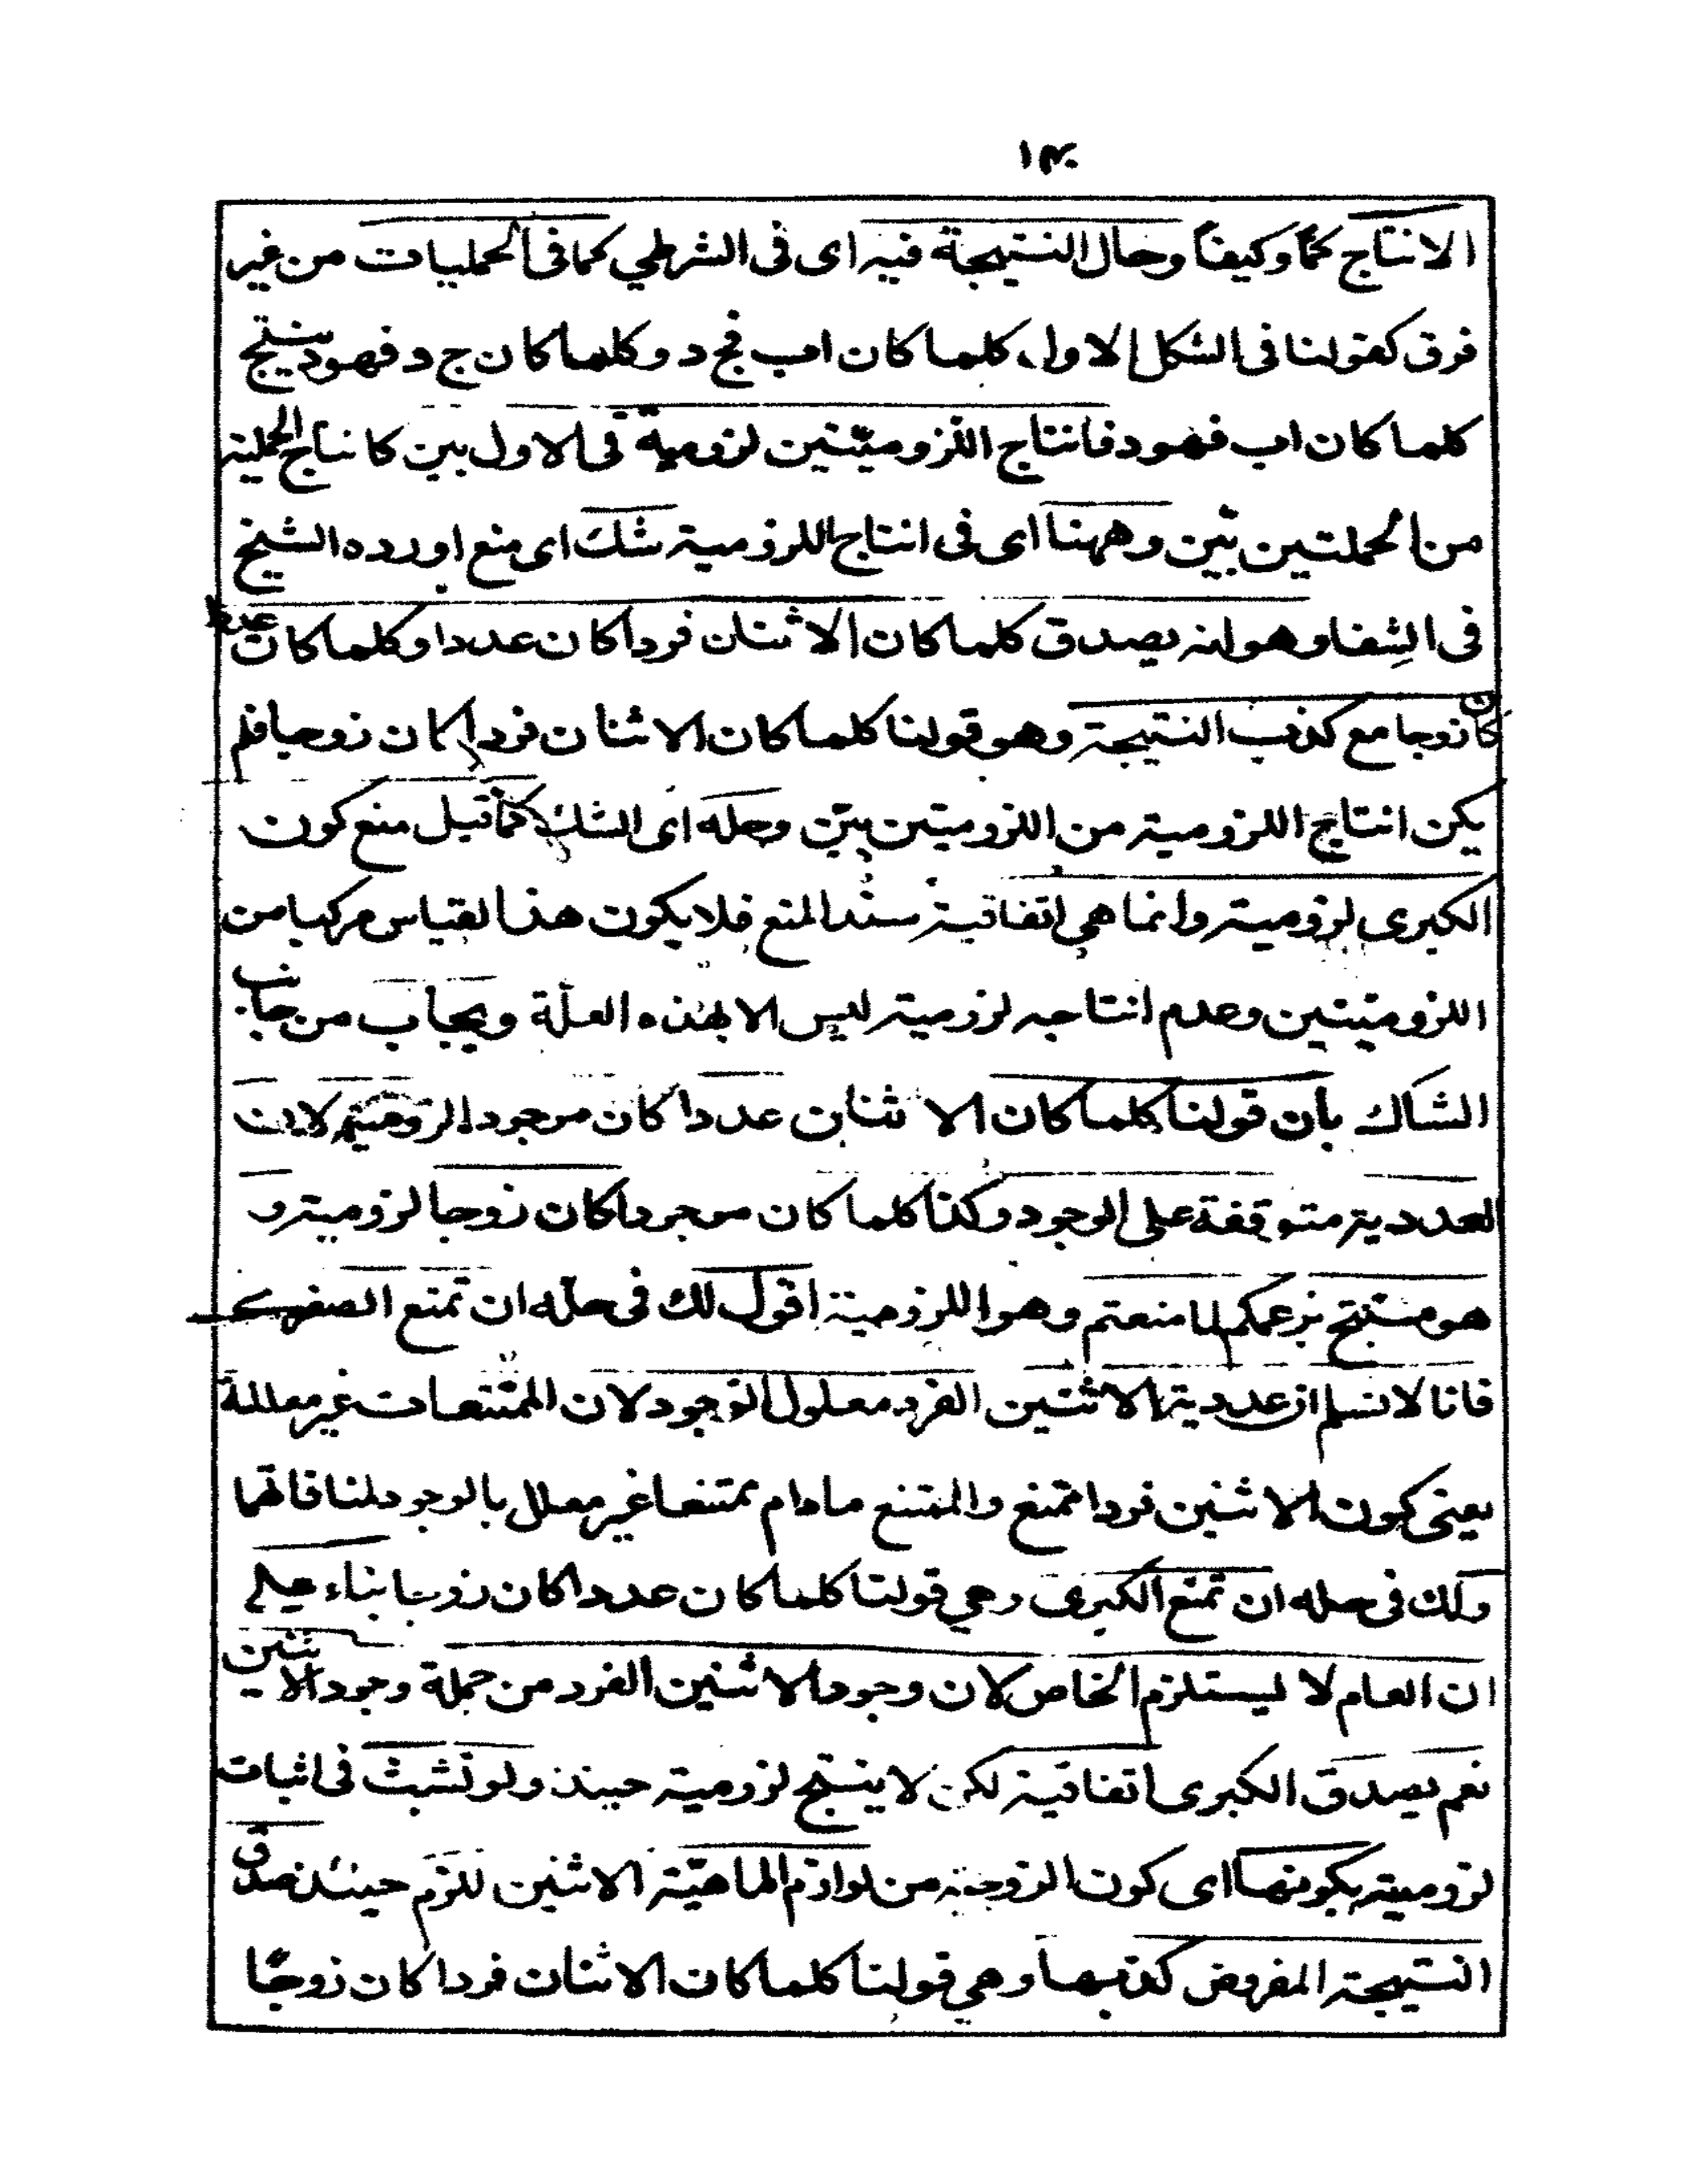 ١٣٠
الانتاج كمّاً وكيفاً وحال النتيجة فيه اى فى الشرطي كما فى الحمليات من غير
فرق كقولنا فى الشكل الاول كلما كان اب فج د وكلما كان ج د فهو د ينتج
كلما كان اب فهو د فانتاج اللّزوميّتين لزومية فى الاول بين كانتاج الحملية
من الحملتين بيّن وههنا اى فى انتاج اللزومية شك اى منع اورده الشيخ
فى الشفا وهو انه يصدق كلما كان الاثنان فردا كان عددا وكلما كان عددا
كان زوجا مع كذب النتيجة وهو قولنا كلما كان الاثنان فردا كان زوجا فلم
يكن انتاج اللزومية من اللزوميتين بيّن وحله اى الشك كما قيل منع كون
الكبرى لزومية وانما هى اتفاقية سند المنع فلا يكون هذا القياس مركبا من
اللزوميّتين وعدم انتاجه لزومية ليس الا بهذه العلّة ويجاب من جانب
الشاك بأن قولنا كلما كان الاثنان عددا كان موجودا لزومية لان
العددية متوقفة على الوجود وكذا كلما كان موجودا كان زوجا لزومية و
هو منتج بزعمكم لما منعتم وهو اللزومية اقول لك فى حلّه ان تمنع الصغرى
فانا لا نسلم ان عددية الاثنين الفرد معلول الوجود لان الممتنعات غير معللة
يعنى كون الاثنين فردا ممتنع والممتنع مادام ممتنعا غير معلل بالوجود لمنافاتهما
ولك فى حله ان تمنع الكبرى وهي قولنا كلما كان عددا كان زوجا بناء على
ان العام لا يستلزم الخاص لان وجود الاثنين الفرد من جملة وجود الاثنين
نعم يصدق الكبرى اتفاقية لكن لا ينتج لزومية حينئذ ولو تشبث فى اثبات
لزوميته بكونها اى كون الزوجية من لوازم الماهيّة الاثنين للزم حينئذ صدق
النتيجة المفروض كذبها وهي قولنا كلما كان الاثنان فردا كان زوجًا